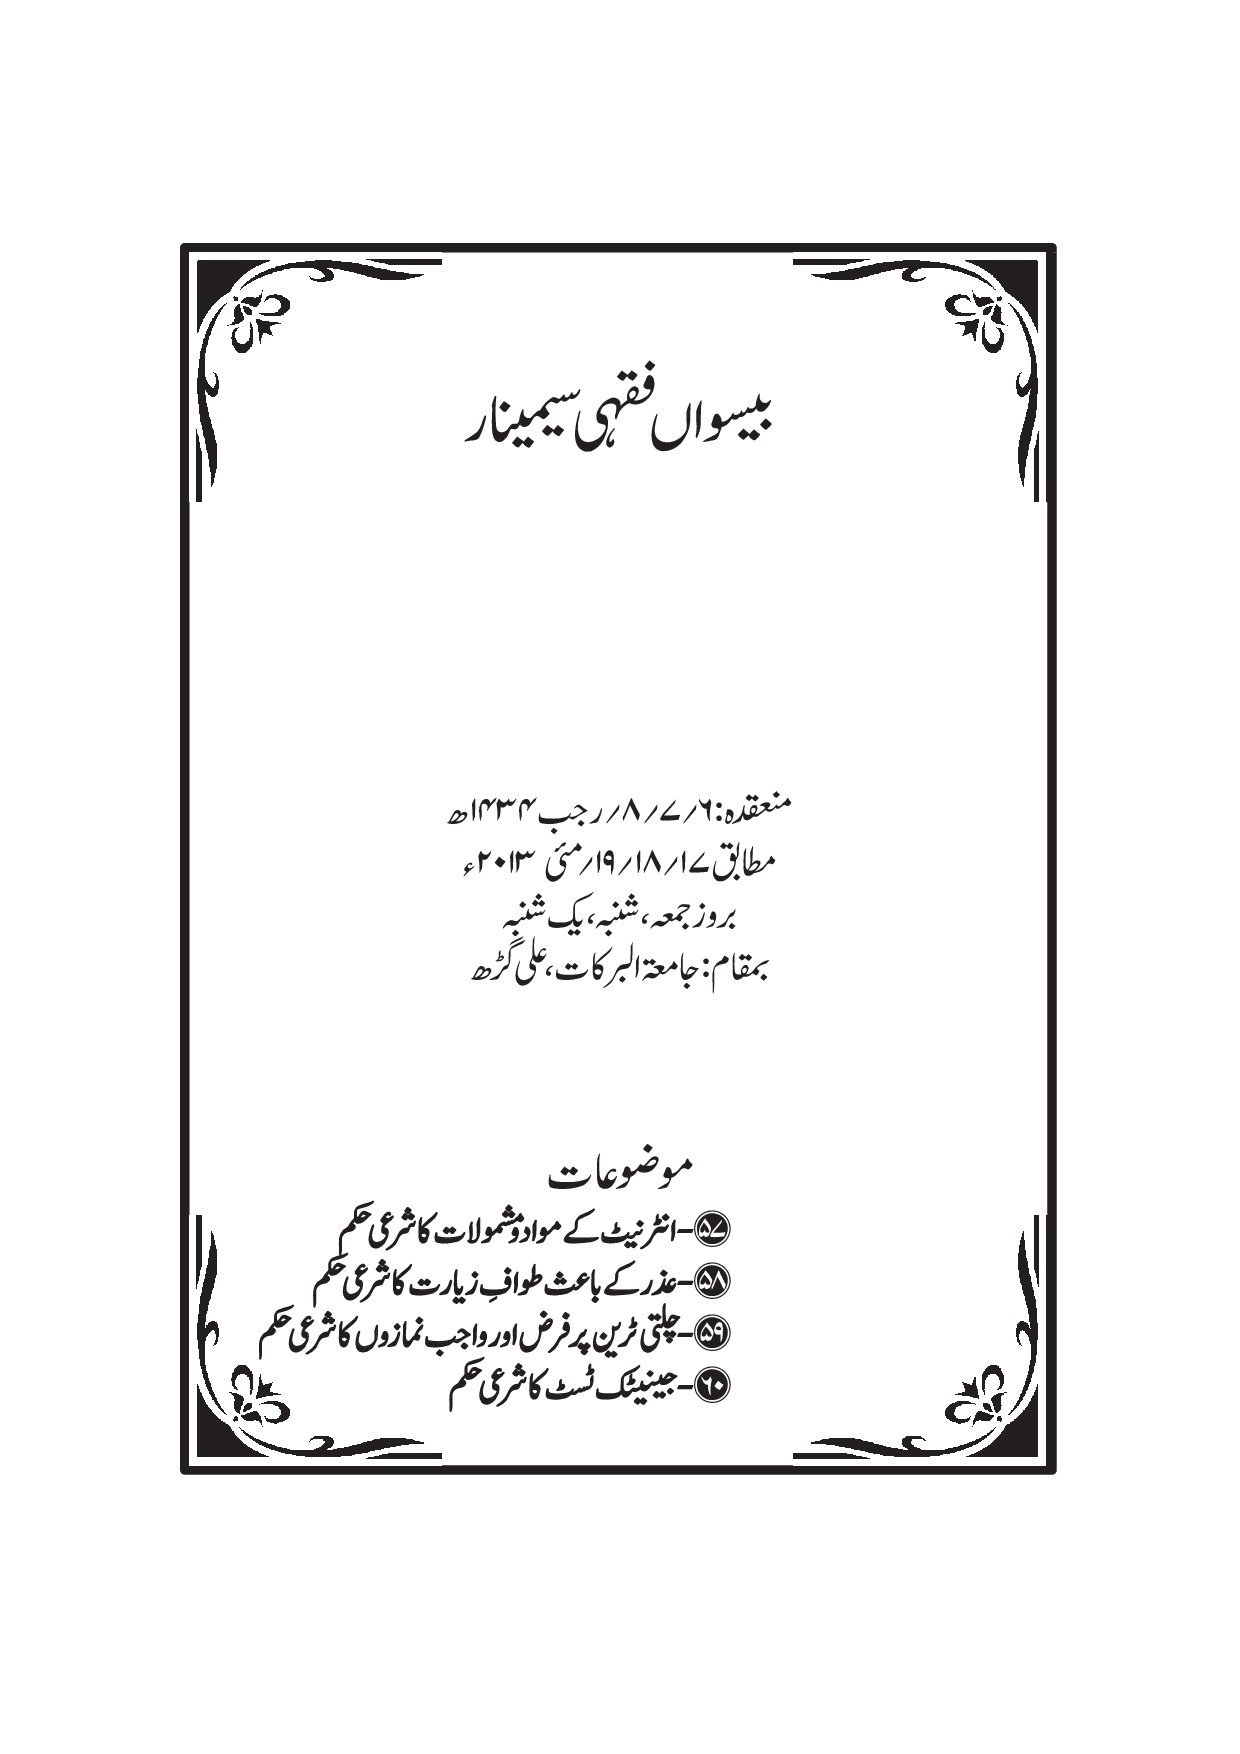 بیسواں فقہی سیمینار
منعقدہ: ۶؍ ۷؍ ۸؍ رجب ۱۴۳۴ھ
مطابق ۱۷؍ ۱۸؍ ۱۹؍ مئی ۲۰۱۳ء
بروز جمعہ، شنبہ، یک شنبہ
بمقام: جامعۃ البرکات، علی گڑھ
موضوعات
۵۷-انٹرنیٹ کے مواد و مشمولات کا شرعی حکم
۵۸-عذر کے باعث طوافِ زیارت کا شرعی حکم
۵۹-چلتی ٹرین پر فرض اور واجب نمازوں کا شرعی حکم
۶۰-جینیٹک ٹسٹ کا شرعی حکم